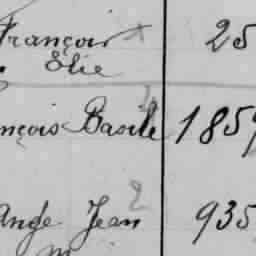 François 25
Elie
nçois Basile 1859
Ange Jean 935